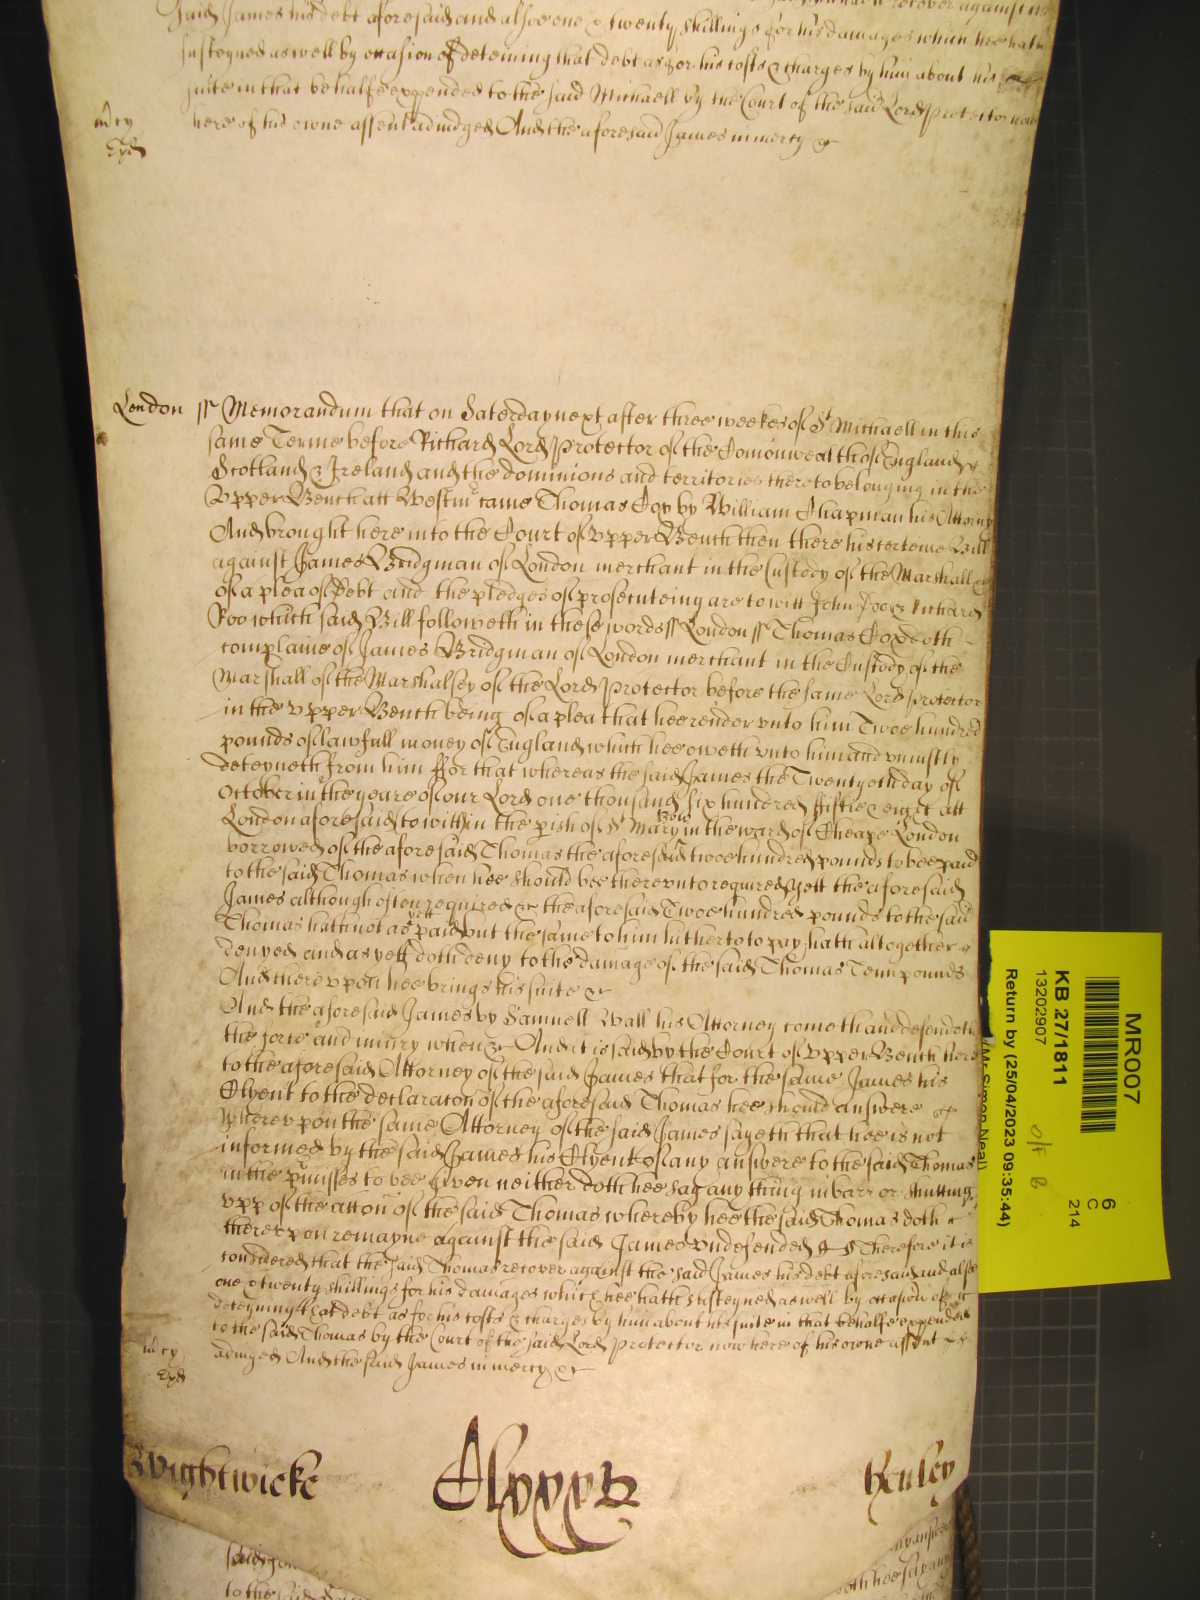 said James his debt aforesaid and alsoe one & twenty shillings for his damages which hee hath
susteyned aswell by occasion of deteining that debt as for his costs & charges by him about his
suite in that behalfe expended to the said Michaell by the Court of the said Lord Protector now
here of his owne assent adiudged And the aforesaid James in mercy &c
London ss Memorandum that on Saterday next after three weekes of St Michaell in this
same Terme before Richard Lord Protector of the Comonwealth of England
Scotland & Ireland and the dominions and territories thereto belonging in the
Upper Bench att Westmr came Thomas Cox by William Chapman his Attorny
And brought here into the Court of upper Bench then there his certeine Bill
against James Bridgman of London merchant in the Custody of the Marshall &c
of a plea of Debt and the pledges of prosecuteing are to witt John Doe & Richard
Roo which said Bill followeth in these words ss London ss Thomas Cox doth
complaine of James Bridgman of London merchant in the Custody of the
Marshall of the Marshalsey of the Lord Protector before the same Lord Protector
in the upper Bench being of a plea that hee render unto him Twoe hundred
pounds of lawfull money of England which hee oweth unto him and uniustly
deteyneth from him ffor that whereas the said James the Twentyeth day of
October in the yeare of our Lord one thousand six hundred fiftie & eight att
London aforesaid to witt in the pish of St Mary Bow in the ward of Cheape London
borrowed of the aforesaid Thomas the aforesaid twoe hundred pounds to bee paid
to the said Thomas when hee should bee thereunto required Yett the aforesaid
James although often required &c the aforesaid Twoe hundred pounds to the said
Thomas hath not as yett paid but the same to him hitherto to pay hath altogether
denyed and as yett doth deny to the damage of the said Thomas Tenn pounds
And thereupon hee brings his suite &c
And the aforesaid James by Samuell Wall his Attorney cometh and defendeth
the force and iniury when &c And it is said by the Court of upper Bench here
to the aforesaid Attorney of the said James that for the same James his
Clyent to the declaracon of the aforesaid Thomas hee should answere
Whereupon the same Attorney of the said James sayeth that hee is not
informed by the said James his Clyent of any answere to the said Thomas
in the pmisses to bee given neither doth hee say any thing in barr or shutting
upp of the accon of the said Thomas whereby hee the said Thomas doth
thereupon remayne against the said James undefended &c Therefore it is
considered that the said Thomas recover against the said James his debt aforesaid and alsoe
one & twenty shillings for his damages which hee hath susteyned aswell by occasion of
deteyning that debt as for his costs & charges by him about his suite in that behalfe expended
to the said Thomas by the Court of the said Lord Protector now here of his owne assent
adiudged And the said James in mercy &c
Wightwicke
Clxxx
Henley
MR007
KB 27/1811
13202907
Return by (25/04/2023 09:35:44)
(Mr Simon Neal)
6
C
214